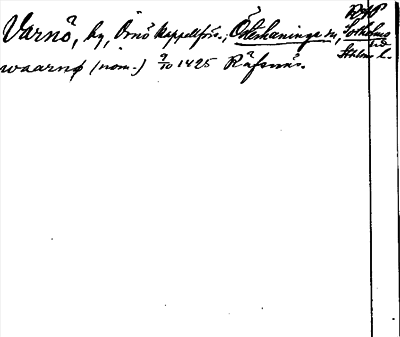 RAP
Varnö, by, Ornö kapellförs., Österhaninge sn, Sotholms
hd
Sthlms l.
waarnø (nom.) 9/10 1495 Räfsnäs.